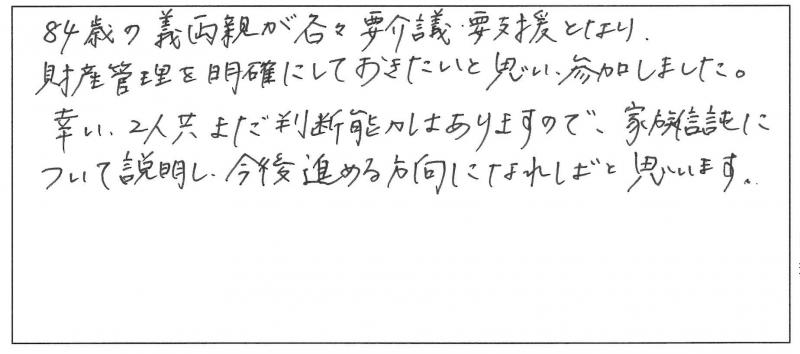 84歳の義両親が各々要介議・要支援となり、
財産管理を明確にしておきたいと思い、参加しました。
幸い、2人共まだ判断能力はありますので、家族信託に
ついて説明し、今後進める方向になればと思います。